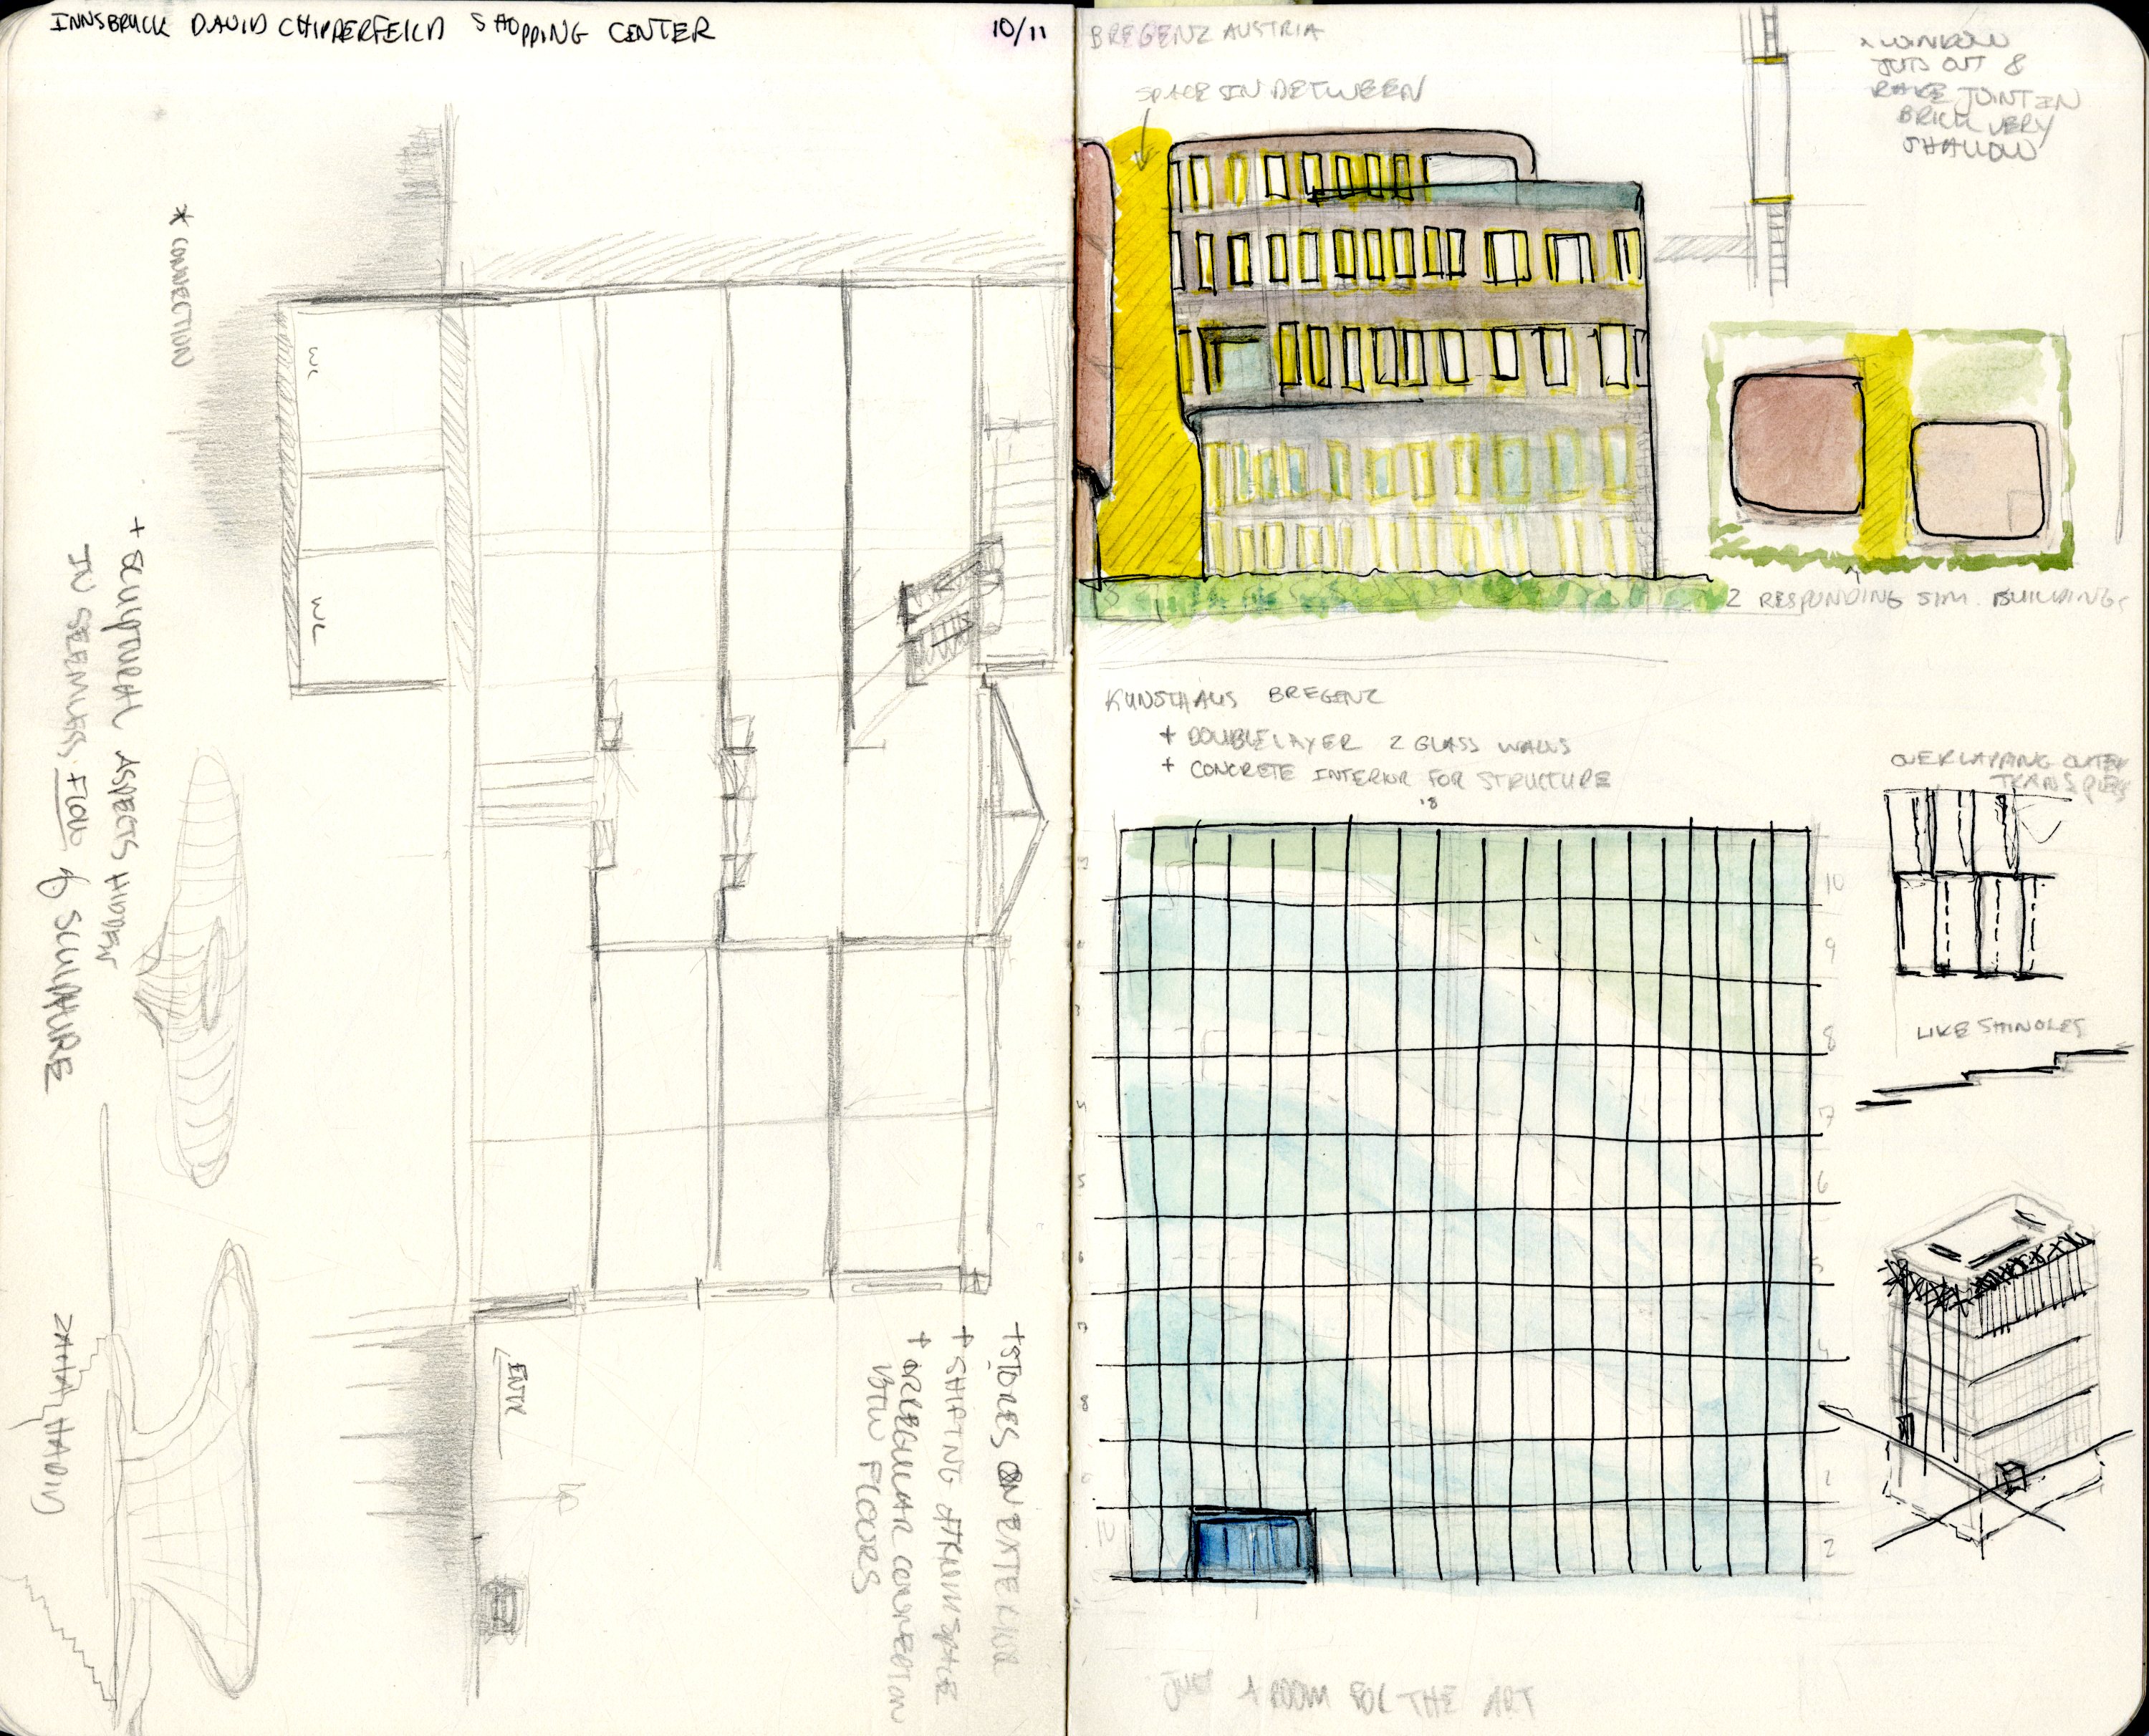 INNSBRUCK DAVID CHIPPERFEILD SHOPPING CENTER
10/11
* CONNECTION
WC
WC
+ SCULPTURAL ASPECTS HIDDEN
IN SEEMLESS FLOW & SCULPTURE
ZAHA HADID
ENTR
+ STORES ON EXTERIOR
+ SHIFTING ATRIUM SPACE
+ IRREGULAR CONNECTION
BTW FLOORS
BREGENZ AUSTRIA
SPACE IN BETWEEN
* WINDOW
JUTS OUT &
RAKE JOINT IN
BRICK VERY
SHALLOW
2 RESPONDING SIM. BUILDINGS
KUNSTHAUS BREGENZ
+ DOUBLE LAYER 2 GLASS WALLS
+ CONCRETE INTERIOR FOR STRUCTURE
18
OVERLAPPING OUTER
LIKE SHINGLES
10
9
8
7
6
5
4
2
5
6
7
8
9
10
JUST A ROOM FOR THE ART